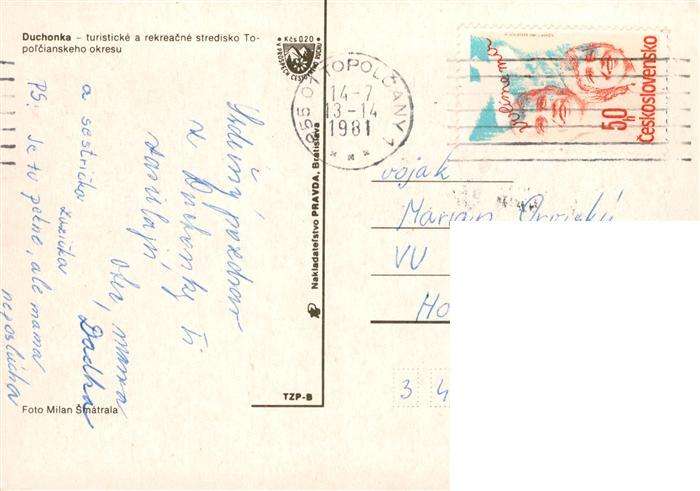 Duchonka – turistické a rekreačné stredisko To-
poľčianskeho okresu
Kčs 0,20
955 01 TOPOĽČANY 1
14-7
13-14
1981
50 h
Československo
Srdečný pozdrav
z Duchonky Ti
zasielajú
otec, mama
Dadka
a sestrička
Zuzička
PS: Je tu pekne, ale mama
neposlúcha
Nakladateľstvo PRAVDA, Bratislava
vojak
Marián
VU
Ho
3 4
TZP-B
Foto Milan Šmátrala